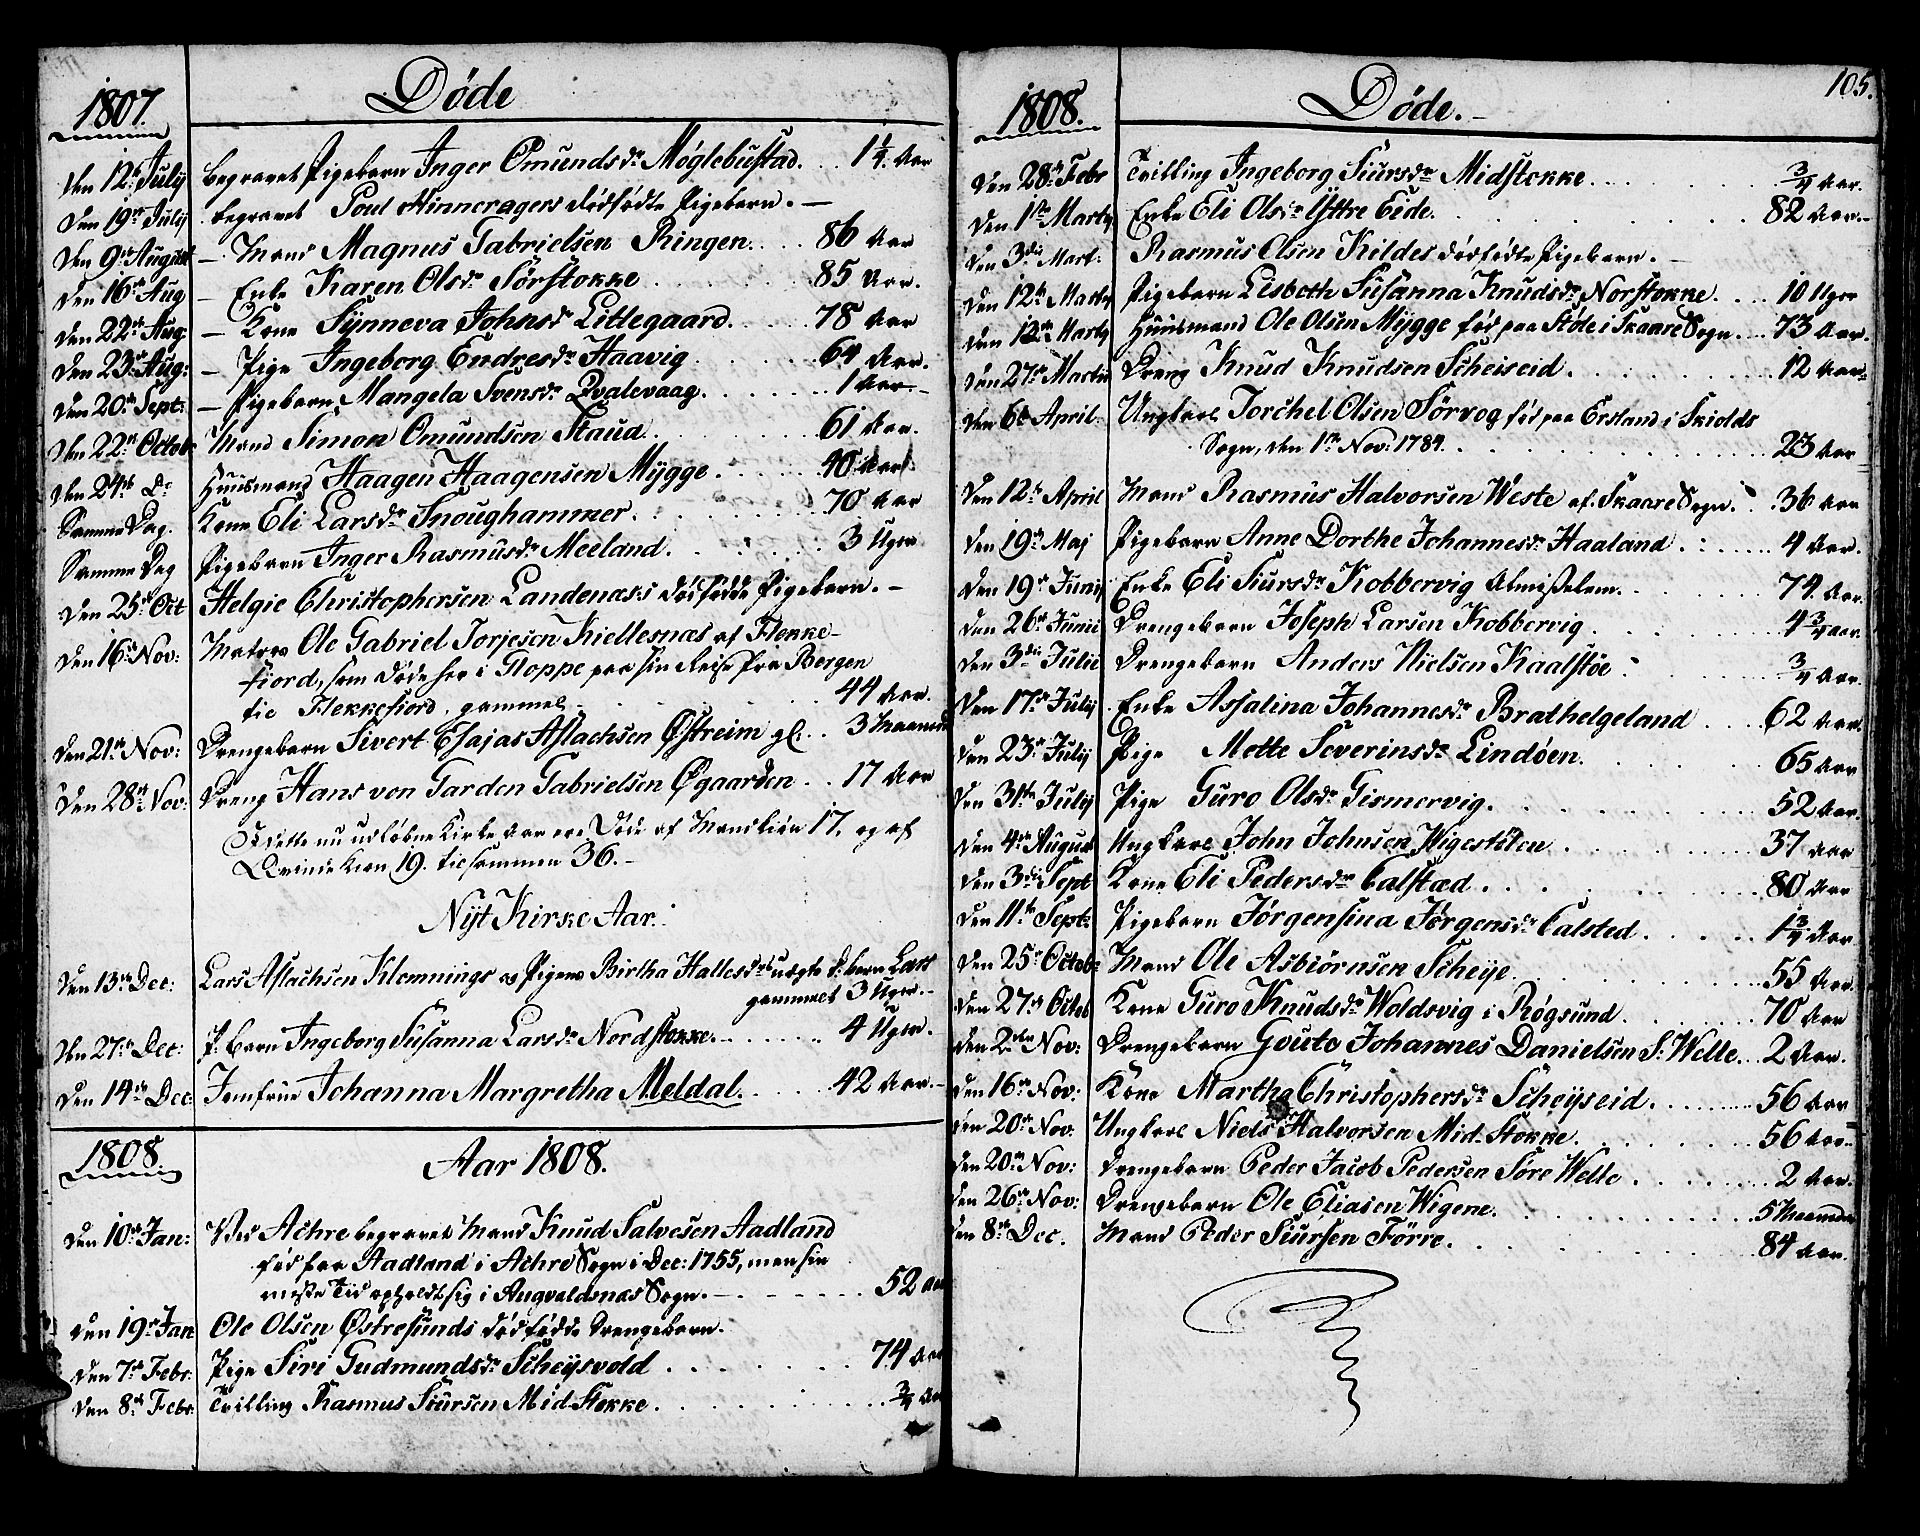 1807.
Døde
den 12te July begravet Pigebarn Inger Omundsdr Møglebustad. .. 1 1/4. Aar
den 19de July begravet Poul Hinneragers dødfødte Pigebarn. —
den 9de August — Mand Magnus Gabrielsen Ringen. ... 86 Aar
den 16de Aug — Enke Karen Olsdr Sörstokke ..... 85 Aar.
den 22de Aug — Kone Synneva Johnsdr Litlegaard. .... 78 Aar
den 23de Aug: — Pige Ingeborg Endresdr Haavig ..... 64 Aar.
den 20de Sept: — Pigebarn Mangela Svensdr Qvalevaag. ..... 1 Aar —
den 22de Octobr Mand Simon Omundsen Staud. ..... 61 Aar.
den 24de Do Huusmand Haagen Haagensen Mygge ..... 40 Aar.
Samme Dag. Kone Eli Larsdr Snoughammer. ..... 70 Aar
Samme Dag Pigebarn Inger Rasmusdr Meeland. ..... 3 Uger
den 25de Oct Helgie Christophersen Landenæs's dødfødde Pigebarn. —
den 16de Nov: Matros Ole Gabriel Torjesen Kiellesnæs af Flekke-
fiord, som døde her i Sloppe paa sin Reise fra Bergen
til Flekkefiord, gammel ..... 44 Aar.
den 21de Nov: Drengebarn Sivert Esajas Aslachsen Østreim gl. .. 3 Maaneder
den 28de Nov: Dreng Hans von Garden Gabrielsen Øgaarden .. 17 Aar
I dette nu udløbne Kirke Aar ere Døde af Mandkiøn 17, og af
Qvindekiøn 19. tilsammen 36. —
Nyt Kirke Aar.
den 13de Dec: Lars Aslachsen Klemnings og Pigens Birtha Hallesdrs uægte D:barn Lars
gammel 3 Uger. —
den 27de Dec: P: Barn Ingeborg Susanna Larsdr Nordstokke. ..... 4 Uger.
den 14de Dec: Jomfrue Johanna Margretha Meldal. .... 42 Aar. —
1808.
Aar 1808.
den 10de Jan: Ved Achre begravet Mand Knud Salvesen Aadland
fød paa Aadland i Achre Sogn i Dec: 1755, men sin
meste Tid opholdt sig i Augvaldsnæs Sogn. — ..... 52 Aar
den 19de Jan Ole Olsen Østresunds dødfødde Drengebarn.
den 7de Febr: Pige Siri Gudmundsdr Scheysvold ..... 74 Aar
den 8de Febr Tvilling Rasmus Siursen Mid-Stokke. ..... 3/4 Aar
105.
1808.
Døde. —
den 28de Febr Tvilling Ingeborg Siursdr Midstokke. ..... 3/4 Aar.
den 1ste Marty Enke Eli Olsdr Yttre Eide. ..... 82 Aar. —
den 3die Mart: Rasmus Olsen Kildes dødfødte Pigebarn. —
den 12te Marty Pigebarn Lisbeth Susanna Knudsdr Norstokke. .. 10 Uger
den 12te Marty Huusmand Ole Olsen Mygge fød paa Støle i Skaare Sogn. .. 73 Aar.
den 27de Marty Dreng Knud Knudsen Scheiseid. ..... 12 Aar.
den 6te April. Ungkarl Torchel Olsen Sörvog fød paa Ersland i Skiolds
Sogn, den 1ste Nov: 1784. ..... 23 Aar
den 12te April Mand Rasmus Halvorsen Weste af Skaare Sogn. . 36 Aar
den 19de Maj Pigebarn Anne Dorthe Johannesdr Haaland ..... 4 Aar.
den 19de Junij Enke Eli Siursdr Kobbervig Almisselem. ..... 74. Aar.
den 26de Junii Drengebarn Joseph Larsen Kobbervig ..... 4 3/4 Aar.
den 3die Julii Drengebarn Anders Nielsen Kaalstøe ..... 3/4 Aar.
den 17de July Enke Assalina Johannesdr Brathelgeland .... 62 Aar.
den 23de July Pige Mette Severinsdr Lindöen. ..... 65 Aar
den 31te July Pige Guro Olsdr Gismervig. ..... 52 Aar.
den 4de August Ungkarl John Johnsen Wigestölen ..... 37 Aar
den 3die Sept Kone Eli Pedersdr Calstæd ..... 80 Aar
den 11te Sept: Pigebarn Jørgensina Jørgensdr Calsted. .... 1 3/4 Aar
den 25de Octob: Mand Ole Asbiørnsen Scheije ..... 55 Aar.
den 27de Octob Kone Guro Knudsdr Woldsvig i Røgsund ..... 70 Aar
den 2den Nov: Drengebarn Gouto Johannes Danielsen S: Welle. .. 2 Aar.
den 16de Nov: Kone Martha Christophersdr Scheyseid. ..... 56 Aar
den 20de Nov: Ungkarl Niels Halvorsen Mid-Stokke. ..... 56 Aar.
den 20de Nov: Drengebarn Peder Jacob Pedersen Søre Welle ..... 2 Aar.
den 26de Nov: Drengebarn Ole Eliasen Wigene. ..... 5 Maaneder
den 8de Dec. Mand Peder Siursen Förre. ..... 84 Aar.